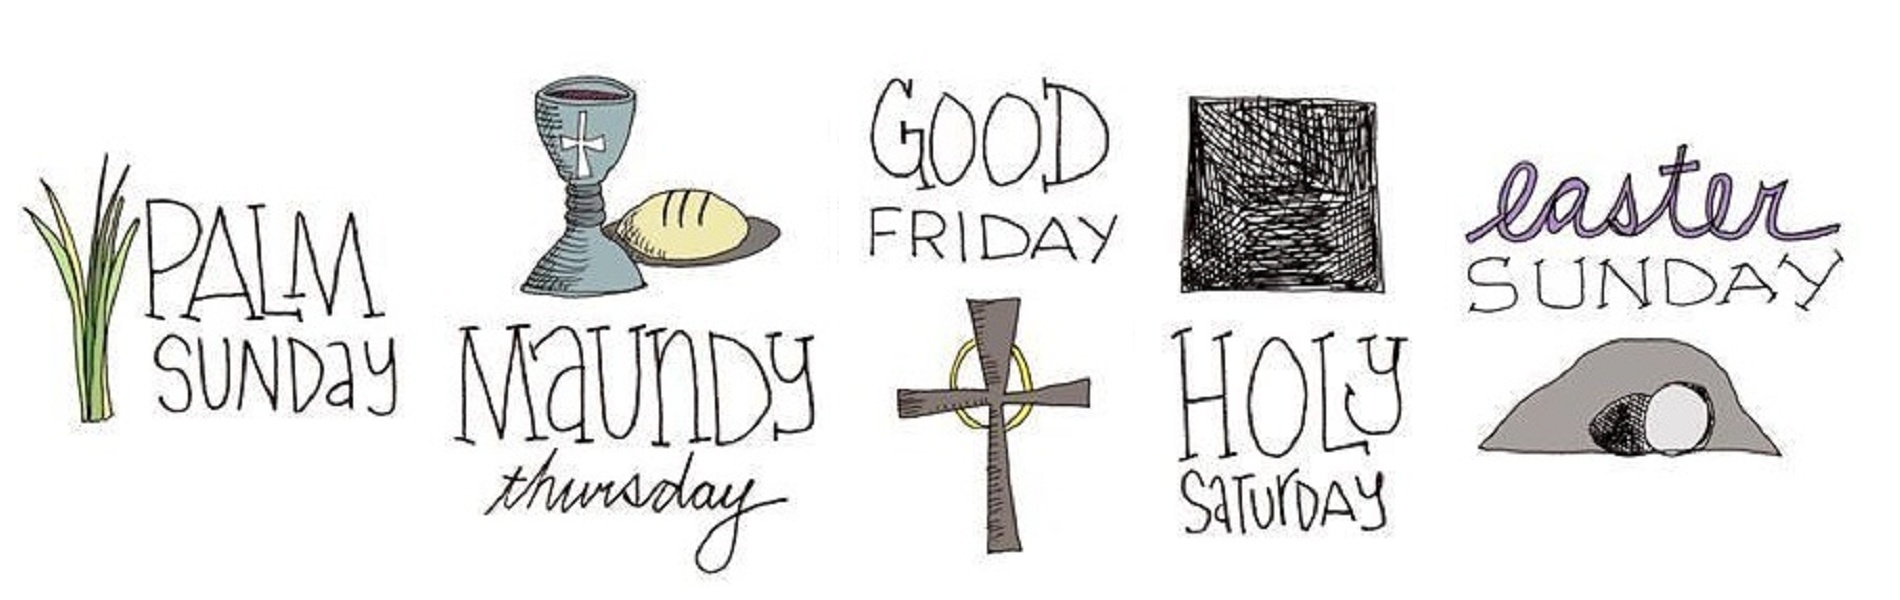 PALM
SUNDay
MaUnDy
thursday
GOOD
FRIDAY
HOLy
SaTurDAY
easter
SUNDAY